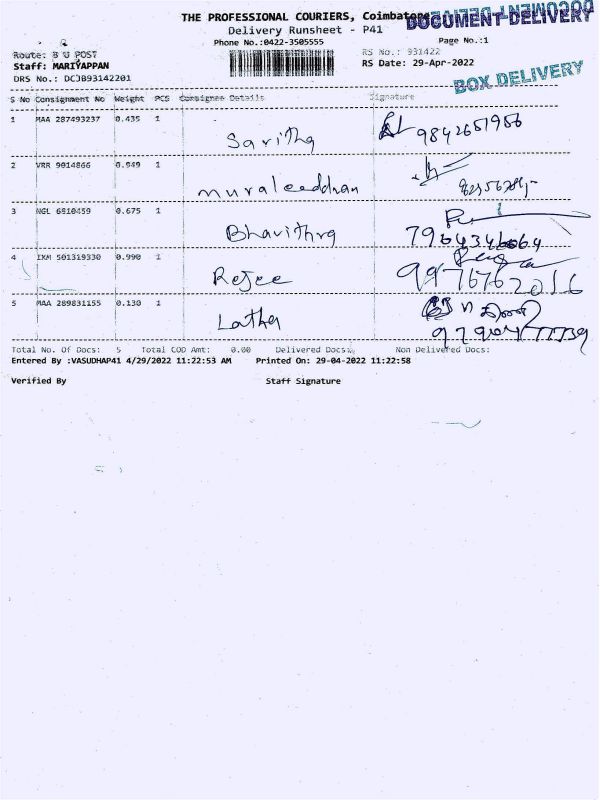 THE PROFESSIONAL COURIERS, Coimbatore
DOCUMENT DELIVERY
Delivery Runsheet - P41
Phone No.:0422-3505555 Page No.:1
Route: B U POST RS No.: 931422
Staff: MARIYAPPAN RS Date: 29-Apr-2022
DRS No.: DCJB93142201
BOX DELIVERY
S No Consignment No Weight PCS Consignee Details Signature
1 MAA 287493237 0.435 1 Savitha 9842651986
2 VRR 9014866 0.949 1
3 NGL 6910459 0.675 1 Bhavithra
4 IXM 501319330 0.990 1 Rejee 9976762016
5 MAA 289831155 0.130 1 Latha
Total No. Of Docs: 5 Total COD Amt: 0.00 Delivered Docs: Non Delivered Docs:
Entered By :VASUDHAP41 4/29/2022 11:22:53 AM Printed On: 29-04-2022 11:22:58
Verified By Staff Signature